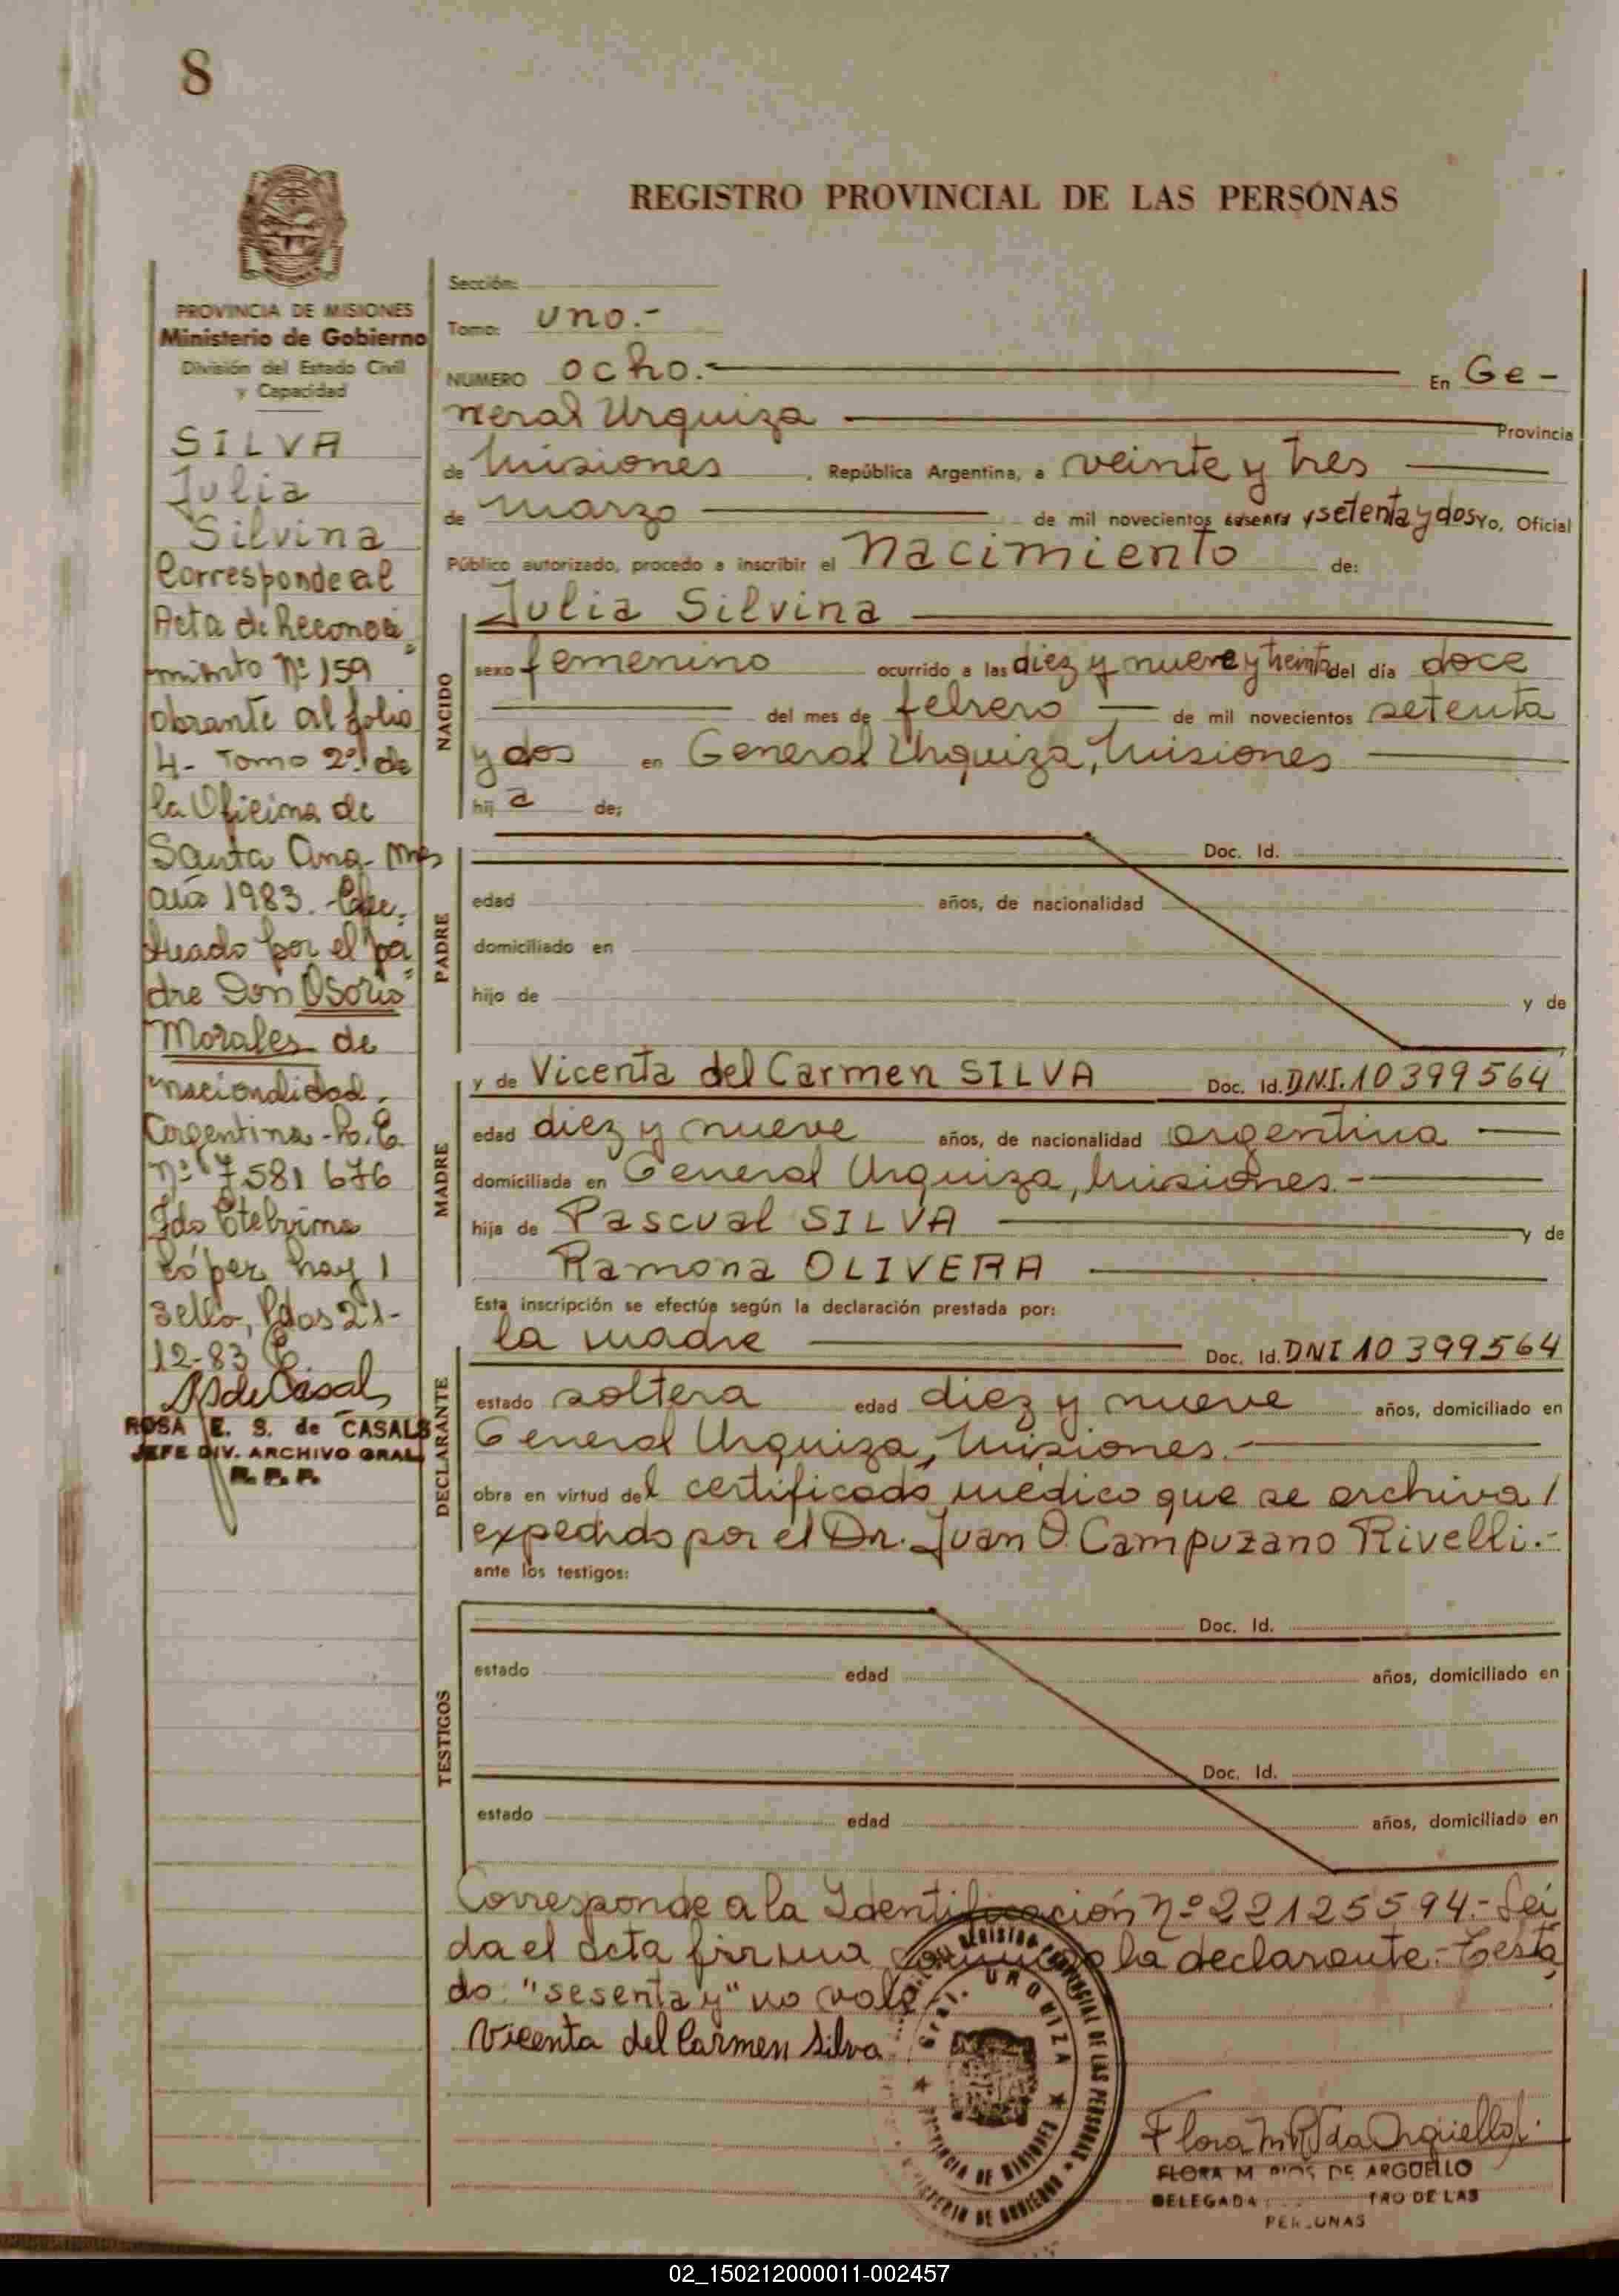 8
REGISTRO PROVINCIAL DE LAS PERSONAS
PROVINCIA DE MISIONES
Ministerio de Gobierno
División del Estado Civil
y Capacidad
SILVA
Julia
Silvina
Corresponde al
Acta de Reconoci
miento Nº 159
obrante al folio
4- Tomo 2º de
la Oficina de
Santa Ana- Mnes
año 1983. Efec
tuado por el pa
dre Don Osorio
Morales de
nacionalidad
Argentina
nº 7581676
Fdo Etelvina
López hay 1
sello, Pdas 21-
12-83
ROSA E. S. de CASALS
JEFE DIV. ARCHIVO GRAL
R. P. P.
Sección:
Tomo: uno.-
NUMERO ocho.- En Ge-
neral Urquiza Provincia
de Misiones , República Argentina, a veinte y tres
de marzo de mil novecientos sesenta y setenta y dos Yo, Oficial
Público autorizado, procedo a inscribir el nacimiento de:
NACIDO
Julia Silvina
sexo femenino ocurrido a las diez y nueve y treinta del día doce
del mes de febrero de mil novecientos setenta
y dos en General Urquiza, Misiones
hij a de;
PADRE
Doc. Id.
edad años, de nacionalidad
domiciliado en
hijo de y de
MADRE
y de Vicenta del Carmen SILVA Doc. Id. D.N.I. 10399564
edad diez y nueve años, de nacionalidad argentina
domiciliada en General Urquiza, Misiones.-
hija de Pascual SILVA y de
Ramona OLIVERA
Esta inscripción se efectúa según la declaración prestada por:
DECLARANTE
la madre Doc. Id. DNI 10399564
estado soltera edad diez y nueve años, domiciliado en
General Urquiza, Misiones.-
obra en virtud del certificado médico que se archiva /
expedido por el Dr. Juan O. Campuzano Rivelli.-
ante los testigos:
TESTIGOS
Doc. Id.
estado edad años, domiciliado en
Doc. Id.
estado edad años, domiciliado en
Corresponde a la Identificación nº 22125594.- Leí
da el acta firma conmigo la declarante.- Testa
do: "sesenta y" no vale
Vicenta del Carmen Silva
REGISTRO PROVINCIAL DE LAS PERSONAS
Gral. URQUIZA
PROVINCIA DE MISIONES
MINISTERIO DE GOBIERNO
FLORA M RIOS DE ARGÜELLO
DELEGADA TRO DE LAS
PERSONAS
02_150212000011-002457